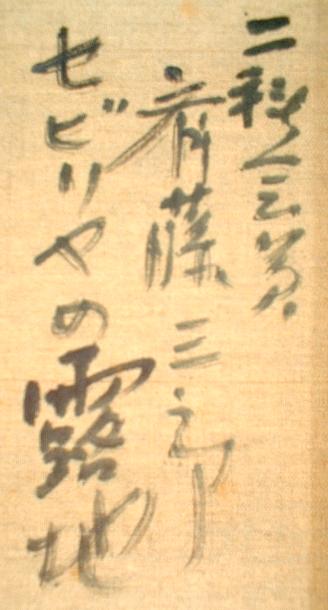 二科会員
斉藤三郎
セビリヤの露地